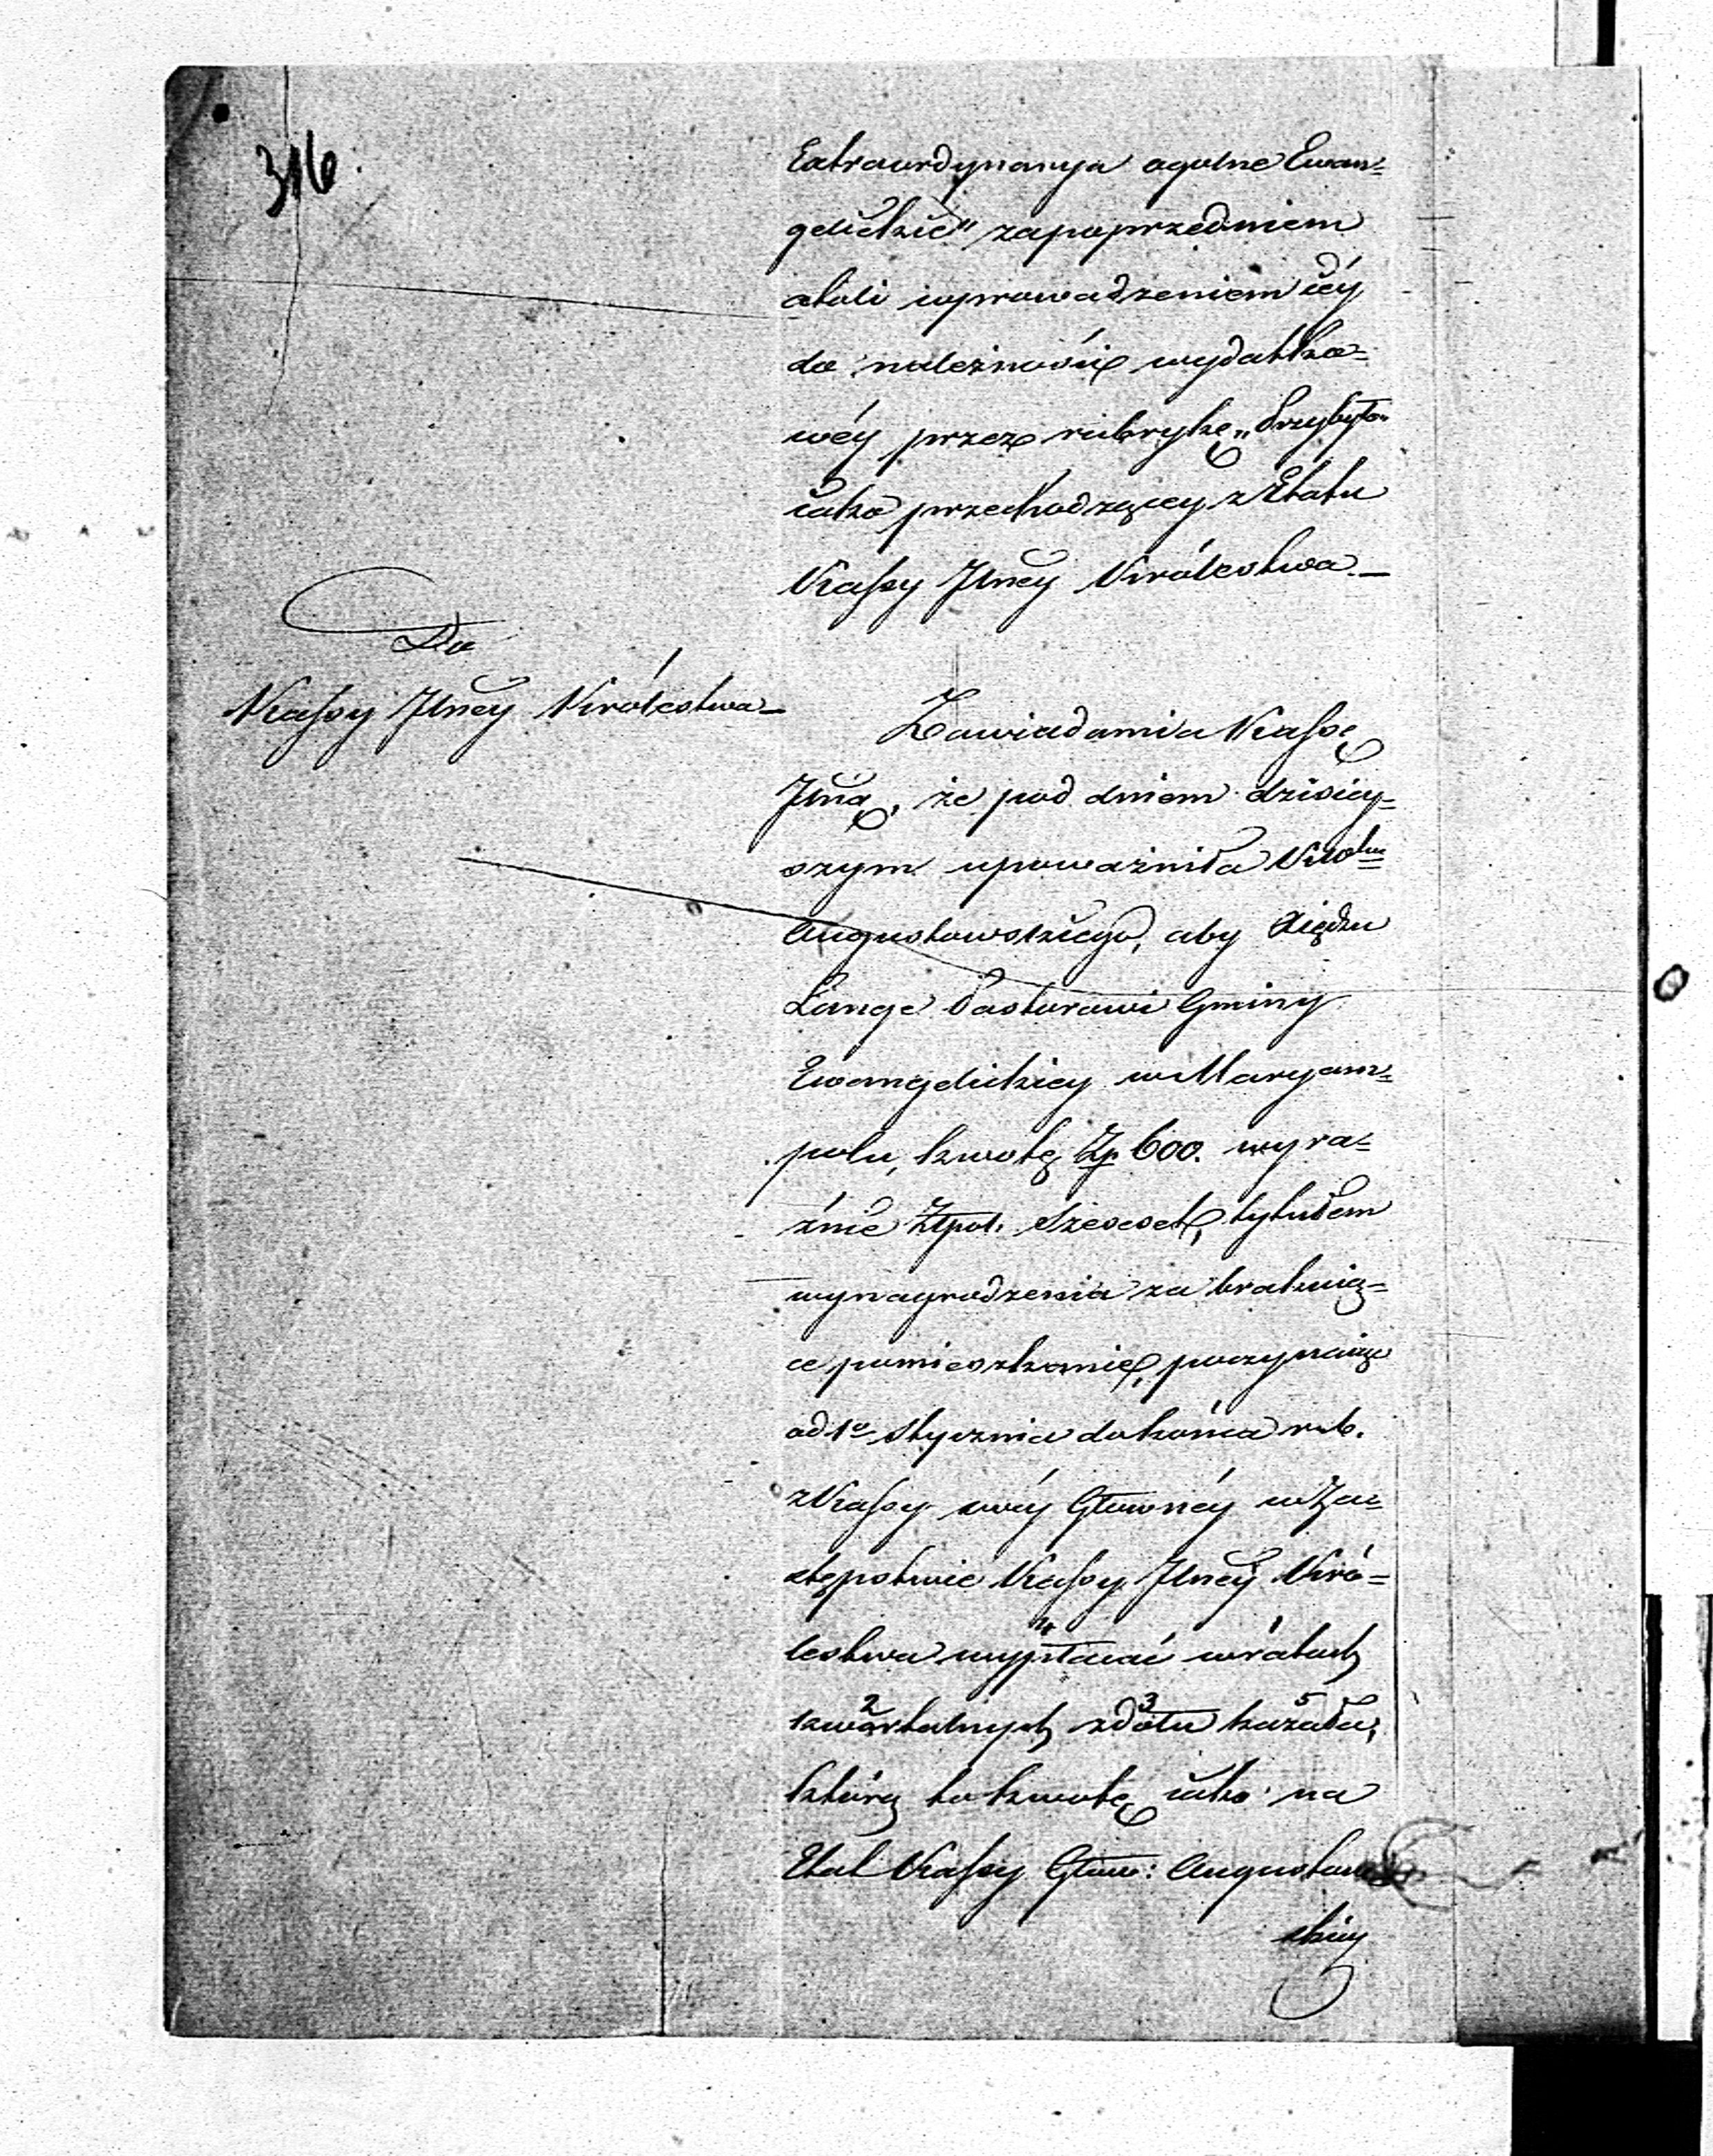 316.
Extraordynarya ogolne Ewan=
gelickie" zapoprzedniem
atoli wprowadzeniem iéy
do należności wydatko=
wéy przez rubrykę "Przybyło"
iako przechodzącey z Etatu
Kassy Jlney Królestwa.—
Do
Kassy Jlney Królestwa—
Zawiadamia Kassę
Jlną, że pod dniem dzisiey=
szym upoważniła
Augustowskiego, aby Xiędzu
Lange Pastorowi Gminy
Ewangelickiey w Maryam=
polu, kwotę Zp 600. wyra=
źnie Złpol. Sześćset, tytułem
wynagrodzenia za brakuią=
ce pomieszkanie, poczynaiąc
od 1o Stycznia do końca r. b.
z Kassy swéy Głównéy w Za=
stępstwie Kassy Jlney Kró=
lestwa wypłacać w ratach
kwartalnych zdołu kazała,
którą to kwotę iako na
Etat Kassy Głów: Augustow
skiey